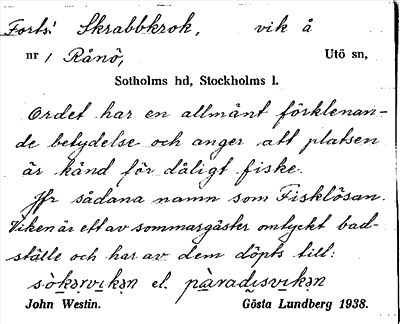 Forts! Skrabbkrok, vik å
nr 1 Rånö, Utö sn,
Sotholms hd, Stockholms l.
Ordet har en allmänt förklenan-
de betydelse och anger att platsen
är känd för dåligt fiske.
Jfr sådana namn som Fisklösan.
Viken är ett av sommargäster omtyckt bad-
ställe och har av dem döpts till:
sò̱kərvi̱kən el. pà̱radi̱svi̱kən
John Westin. Gösta Lundberg 1938.